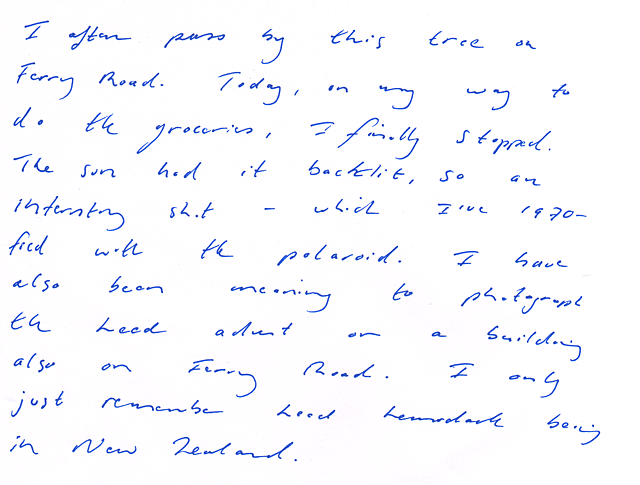 I often pass by this tree on
Ferry Road. Today, on my way to
do the groceries, I finally stopped.
The sun had it backlit, so an
interesting shot - which I've 1970-
fied with the polaroid. I have
also been meaning to photograph
the Leed advert on a building
also on Ferry Road. I only
just remember Leed Lemonade being
in New Zealand.